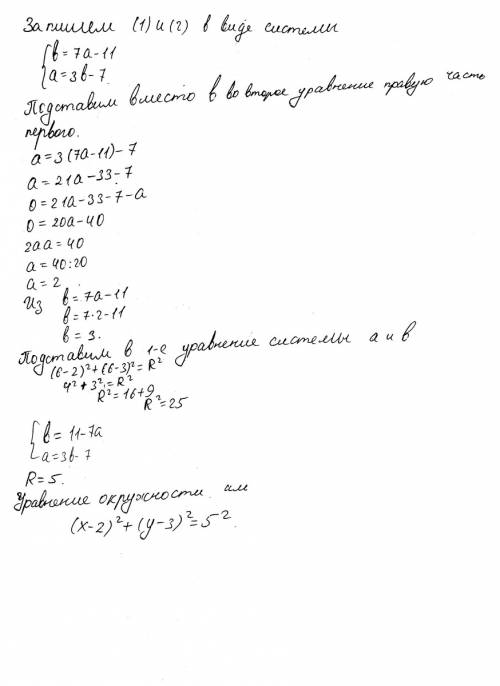 Запишем (1) и (2) в виде системы
{ в = 7а - 11
{ а = 3в - 7
Подставим вместо в во второе уравнение правую часть
первого.
а = 3(7а - 11) - 7
а = 21а - 33 - 7
0 = 21а - 33 - 7 - а
0 = 20а - 40
2аа = 40
а = 40:20
а = 2
Из в = 7а - 11
в = 7·2 - 11
в = 3.
Подставим в 1-е уравнение системы а и в
(6-2)² + (6-3)² = R²
4² + 3² = R²
R² = 16 + 9
R² = 25
{ в = 11 - 7а
{ а = 3в - 7
R = 5.
Уравнение окружности
(x-2)² + (y-3)² = 5².